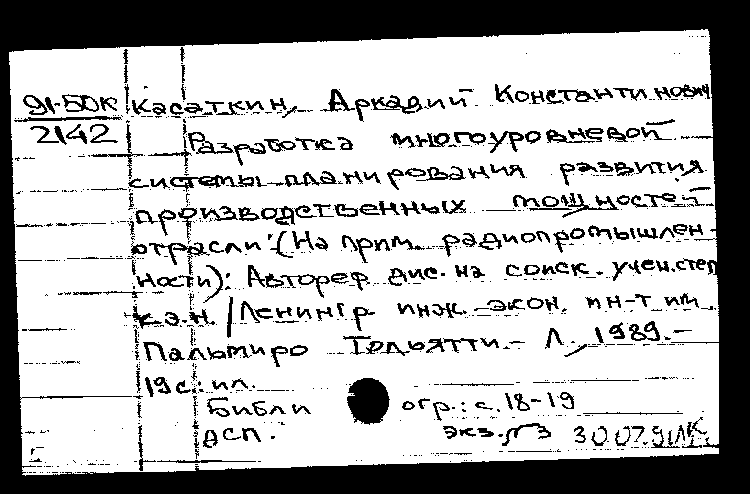 91-50К Касаткин, Аркадий Константинович
2142 Разработка многоуровневой
системы планирования развития
производственных мощностей
отрасли: (На прим. радиопромышлен-
ности): Автореф дис. на соиск. учен.степ
к.э.н. /Ленингр инж.-экон. ин-т им.
Пальмиро Тольятти.- Л, 1989.-
19 с.: ил.
Библиогр.: с. 18-19
ДСП. экз. №3 30.07.91